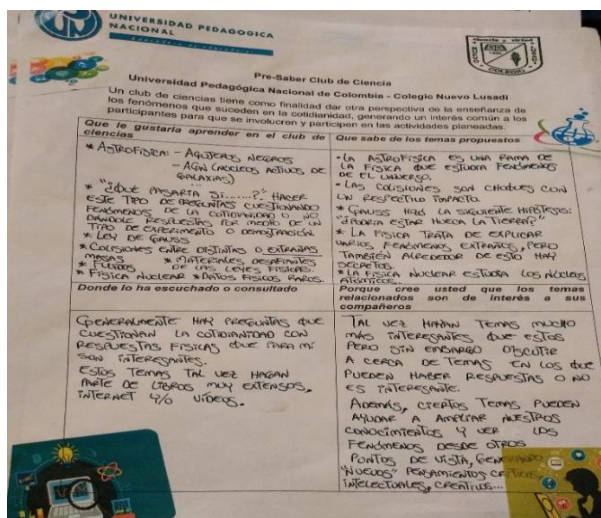 UNIVERSIDAD PEDAGOGICA
NACIONAL
Pre-Saber Club de Ciencia
Universidad Pedagógica Nacional de Colombia - Colegio Nuevo Lusadi
Un club de ciencias tiene como finalidad dar otra perspectiva de la enseñanza de
los fenómenos que suceden en la cotidianidad, generando un interés común a los
participantes para que se involucren y participen en las actividades planeadas.
Que le gustaria aprender en el club de
ciencias
* ASTROFISICA: - AGUJEROS NEGROS
- AGN (NÚCLEOS ACTIVOS DE
GALAXIAS)
* "¿QUÉ PASARIA SI......?" HACER
ESTE TIPO DE PREGUNTAS CUESTIONANDO
FENOMENOS DE LA COTIDIANIDAD O NO
DANDOLE RESPUESTAS POR MEDIO DE UN
TIPO DE EXPERIMENTO O DEMOSTRACIÓN.
* LEY DE GAUSS
* COLISIONES ENTRE DISTINTAS O EXTRAÑAS
MASAS * MATERIALES DESAFIANTES
* FLUIDOS DE LAS LEYES FISICAS.
* FISICA NUCLEAR * DATOS FISICOS RAROS.
Que sabe de los temas propuestos
- LA ASTROFISICA ES UNA RAMA DE
LA FISICA QUE ESTUDIA FENOMENOS
DE EL UNIVERSO.
- LAS COLISIONES SON CHOQUES CON
UN RESPECTIVO IMPACTO.
* GAUSS HIZO LA SIGUIENTE HIPOTESIS:
"¿PODRIA ESTAR HUECA LA TIERRA?"
* LA FISICA TRATA DE EXPLICAR
VARIOS FENOMENOS EXTRAÑOS, PERO
TAMBIÉN ALREDEDOR DE ESTO HAY
SECRETOS.
* LA FISICA NUCLEAR ESTUDIA LOS NÚCLEOS
ATOMICOS.
Donde lo ha escuchado o consultado
GENERALMENTE HAY PREGUNTAS QUE
CUESTIONAN LA COTIDIANIDAD CON
RESPUESTAS FISICAS QUE PARA MI
SON INTERESANTES.
ESTOS TEMAS TAL VEZ HAGAN
PARTE DE LIBROS MUY EXTENSOS,
INTERNET Y/O VIDEOS.
Porque cree usted que los temas
relacionados son de interés a sus
compañeros
TAL VEZ HAYAN TEMAS MUCHO
MÁS INTERESANTES QUE ESTOS
PERO SIN EMBARGO DISCUTIR
A CERCA DE TEMAS EN LOS QUE
PUEDEN HABER RESPUESTAS O NO
ES INTERESANTE.
ADEMÁS, CIERTOS TEMAS PUEDEN
AYUDAR A AMPLIAR NUESTROS
CONOCIMIENTOS Y VER LOS
FENÓMENOS DESDE OTROS
PUNTOS DE VISTA, GENERANDO
"NUEVOS" PENSAMIENTOS CRITICOS,
INTELECTUALES, CREATIVOS...